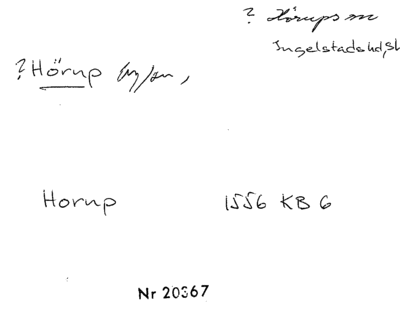 ? Hörups sn
Ingelstads hd, Sk
? Hörup by/sn,
Horup 1556 KB 6
Nr 20367